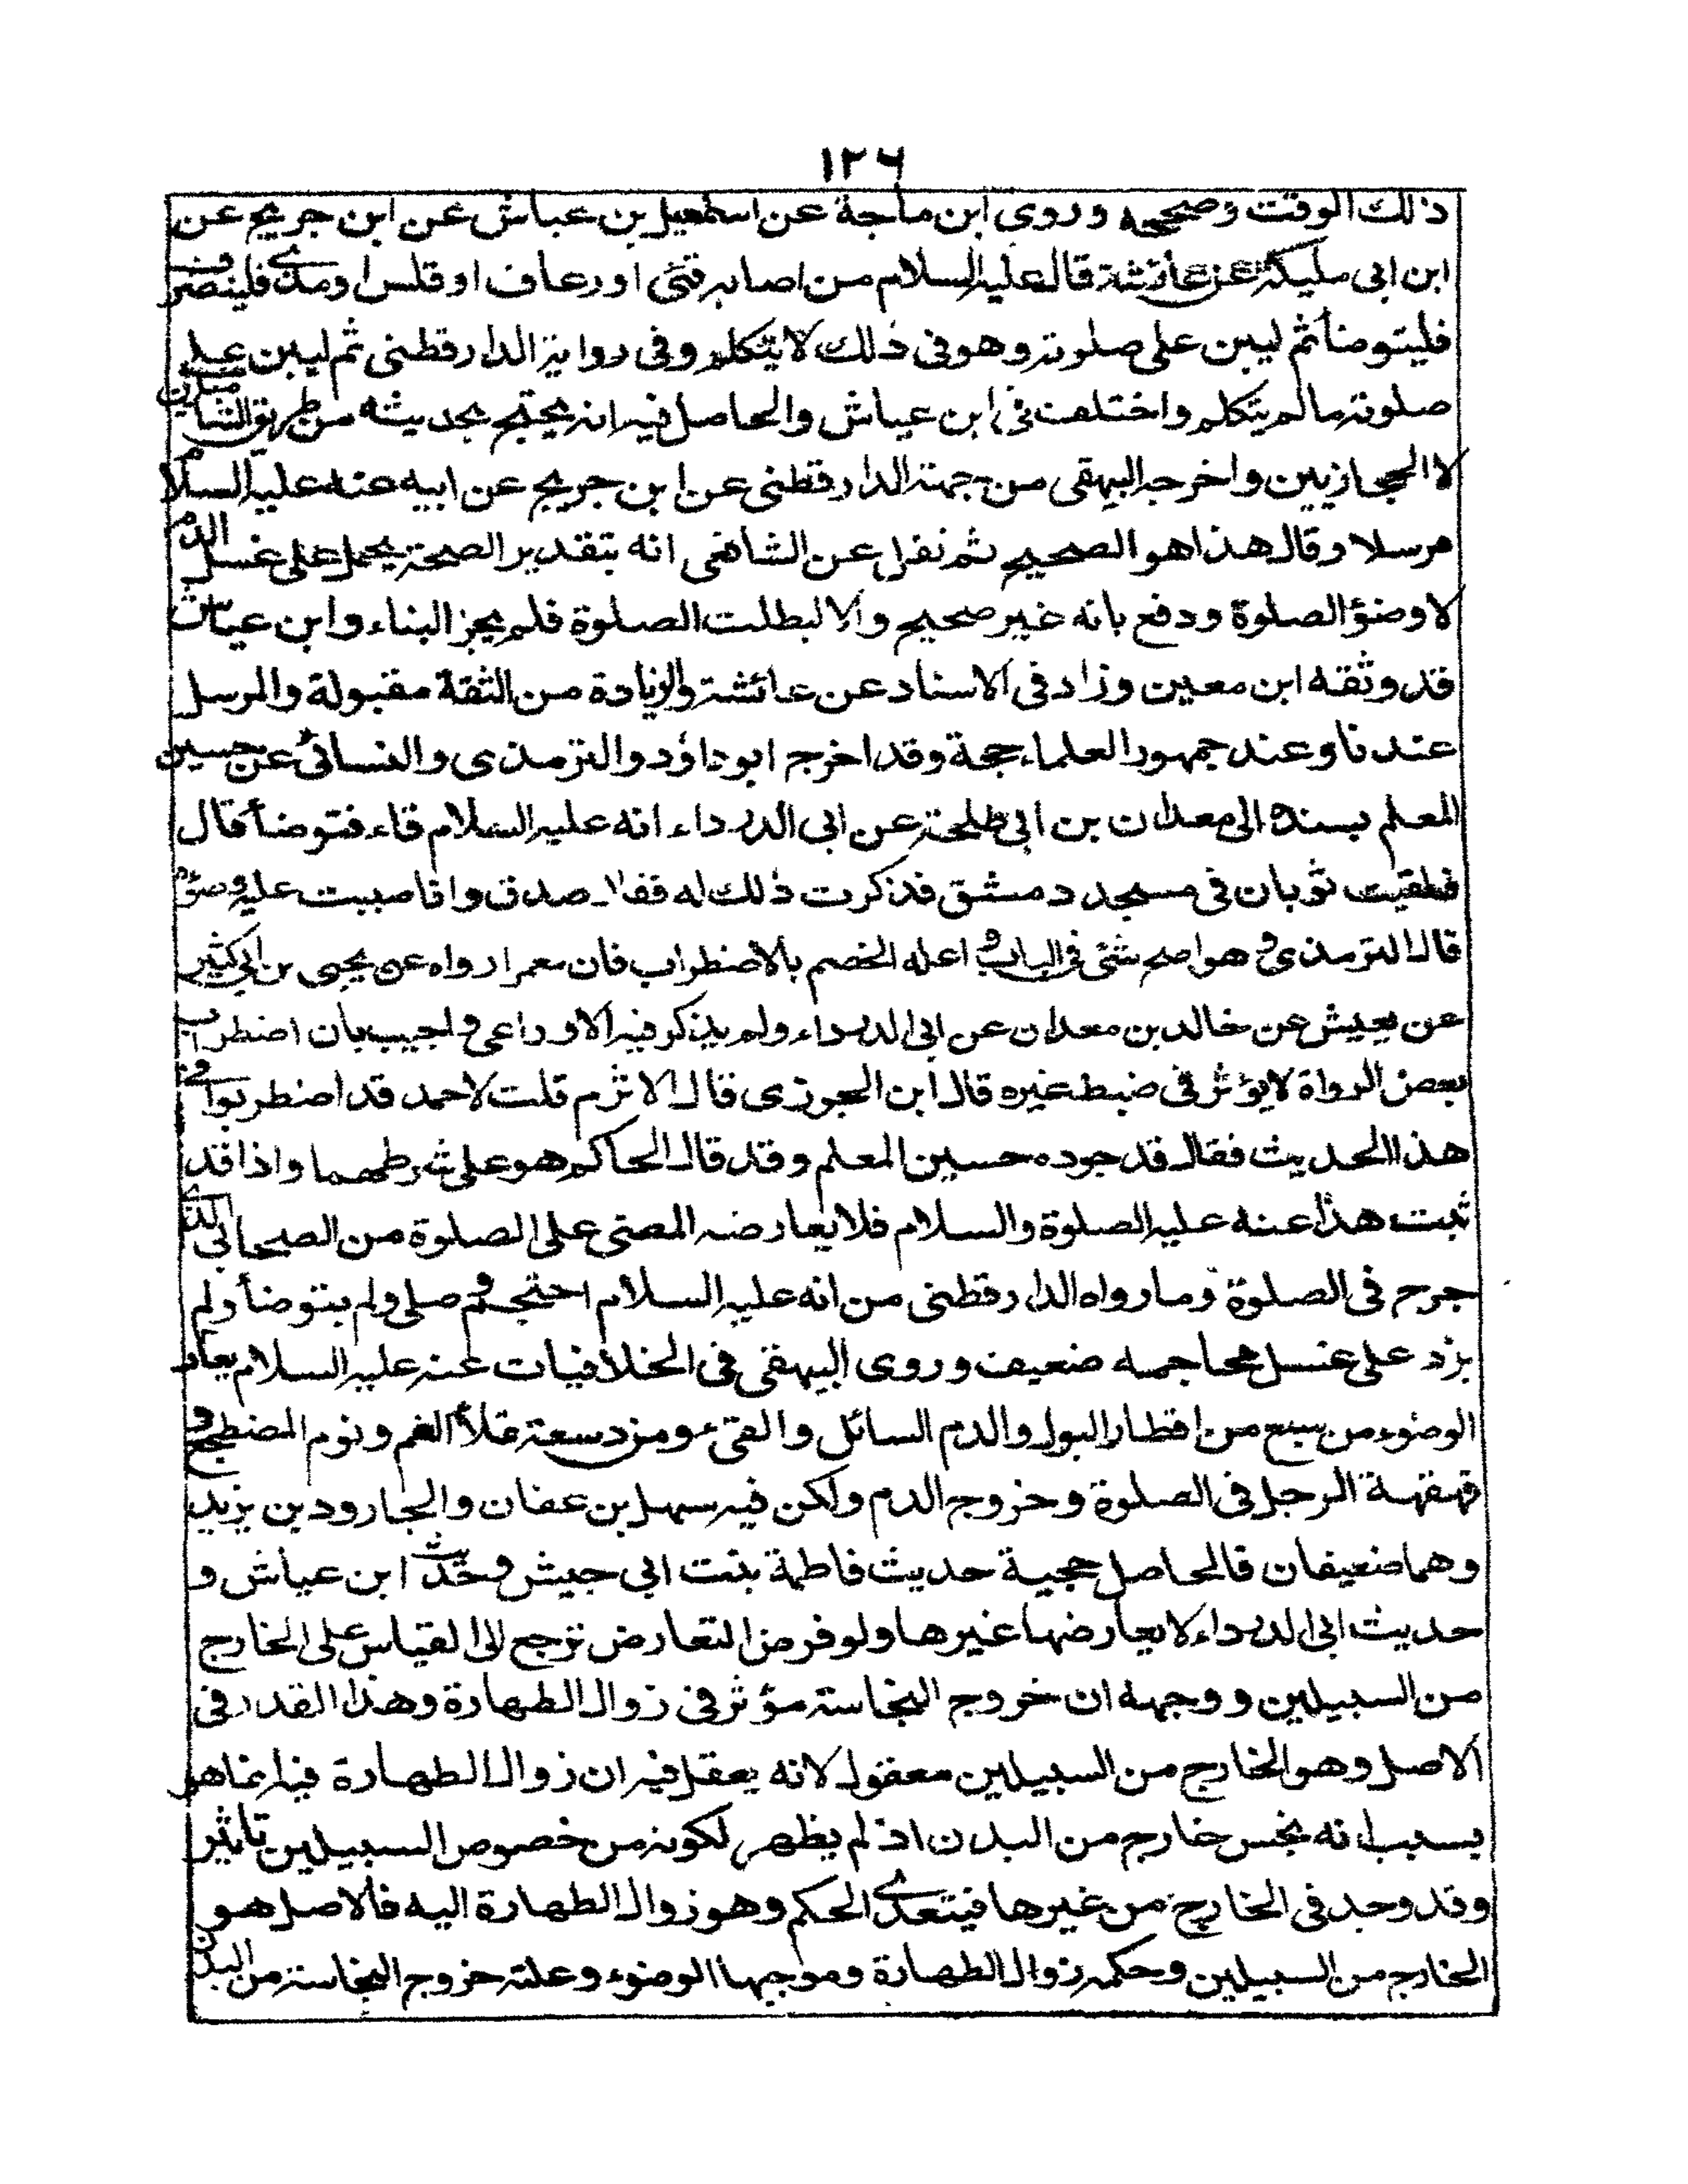 ١٢٦
ذلك الوقت وصححه وروى ابن ماجة عن اسمعيل بن عياش عن ابن جريج عن
ابن ابى مليكة عن عائشة قال عليه السلام من اصابه قئى او رعاف او قلس او مذى فلينصرف
فليتوضأ ثم ليبن على صلوته وهو فى ذلك لا يتكلم وفى رواية الدارقطنى ثم ليبن على
صلوته مالم يتكلم واختلف فى ابن عياش والحاصل فيه انه يحتج بحديثه من طريق الشاميين
لا الحجازيين واخرجه البيهقى من جهة الدارقطنى عن ابن جريج عن ابيه عنه عليه السلام
مرسلا وقال هذا هو الصحيح ثم نقل عن الشافعى انه بتقدير الصحة يحمل على غسل الدم
لا وضؤ الصلوة ودفع بانه غير صحيح والا لبطلت الصلوة فلم يجز البناء وابن عياش
قد وثقه ابن معين وزاد فى الاسناد عن عائشة والزيادة من الثقة مقبولة والمرسل
عندنا وعند جمهور العلماء حجة وقد اخرج ابو داؤد والترمذى والنسائى عن حسين
المعلم بسنده الى معدان بن ابى طلحة عن ابى الدرداء انه عليه السلام قاء فتوضأ قال
فلقيت ثوبان فى مسجد دمشق فذكرت ذلك له فقال صدق وانا صببت عليه وضوؤه
قال الترمذى وهو اصح شئى فى الباب و اعله الخصم بالاضطراب فان معمرا رواه عن يحيى بن ابى كثير
عن يعيش عن خالد بن معدان عن ابى الدرداء ولم يذكر فيه الاوزاعى واجيب بان اضطراب
بعض الرواة لا يؤثر فى ضبط غيره قال ابن الجوزى قال الاثرم قلت لاحمد قد اضطربوا فى
هذا الحديث فقال قد جوده حسين المعلم وقد قال الحاكم هو على شرطهما واذا قد
ثبت هذا عنه عليه الصلوة والسلام فلا يعارضه المضى على الصلوة من الصحابى الذى
جرح فى الصلوة وما رواه الدارقطنى من انه عليه السلام احتجم و صلى ولم يتوضأ ولم
يزد على غسل محاجمه ضعيف وروى البيهقى فى الخلافيات عنه عليه السلام يعاد
الوضوء من سبع من اقطار البول والدم السائل والقئ ومن دسعة تملأ الفم ونوم المضطجع و
قهقهة الرجل فى الصلوة وخروج الدم ولكن فيه سهل بن عفان والجارود بن يزيد
وهما ضعيفان فالحاصل حجية حديث فاطمة بنت ابى حبيش وحديث ابن عياش و
حديث ابى الدرداء لا يعارضها غيرها ولو فرض التعارض نرجع الى القياس على الخارج
من السبيلين ووجهه ان خروج النجاسة مؤثر فى زوال الطهارة وهذا القدر فى
الاصل وهو الخارج من السبيلين معقول لانه يعقل فيه ان زوال الطهارة فيه انما هو
بسبب انه نجس خارج من البدن اذ لم يظهر لكونه من خصوص السبيلين تاثير
وقد وجد فى الخارج من غيرها فيتعدى الحكم وهو زوال الطهارة اليه فالاصل هو
الخارج من السبيلين وحكمه زوال الطهارة وموجبها الوضوء وعلته خروج النجاسة من البدن